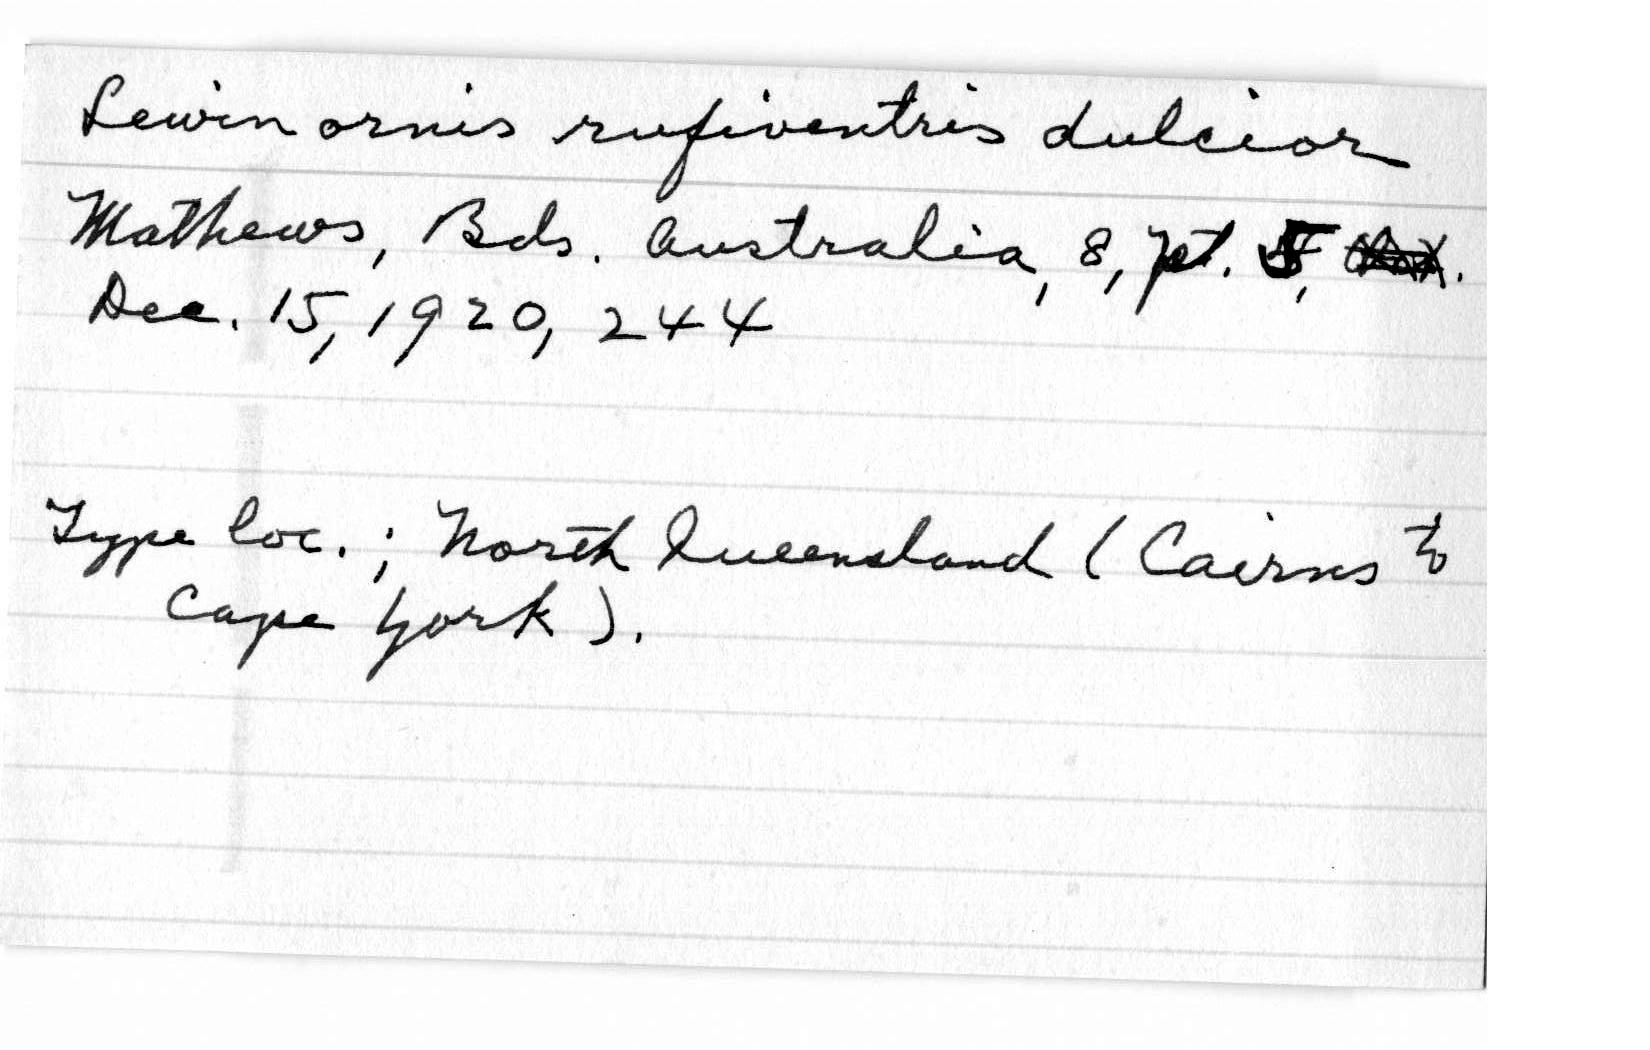 Lewinornis rufiventris dulcior
Mathews, Bds. Australia, 8, pt. 5,
Dec. 15, 1920, 244
Type loc.; North Queensland (Cairns to
Cape York).